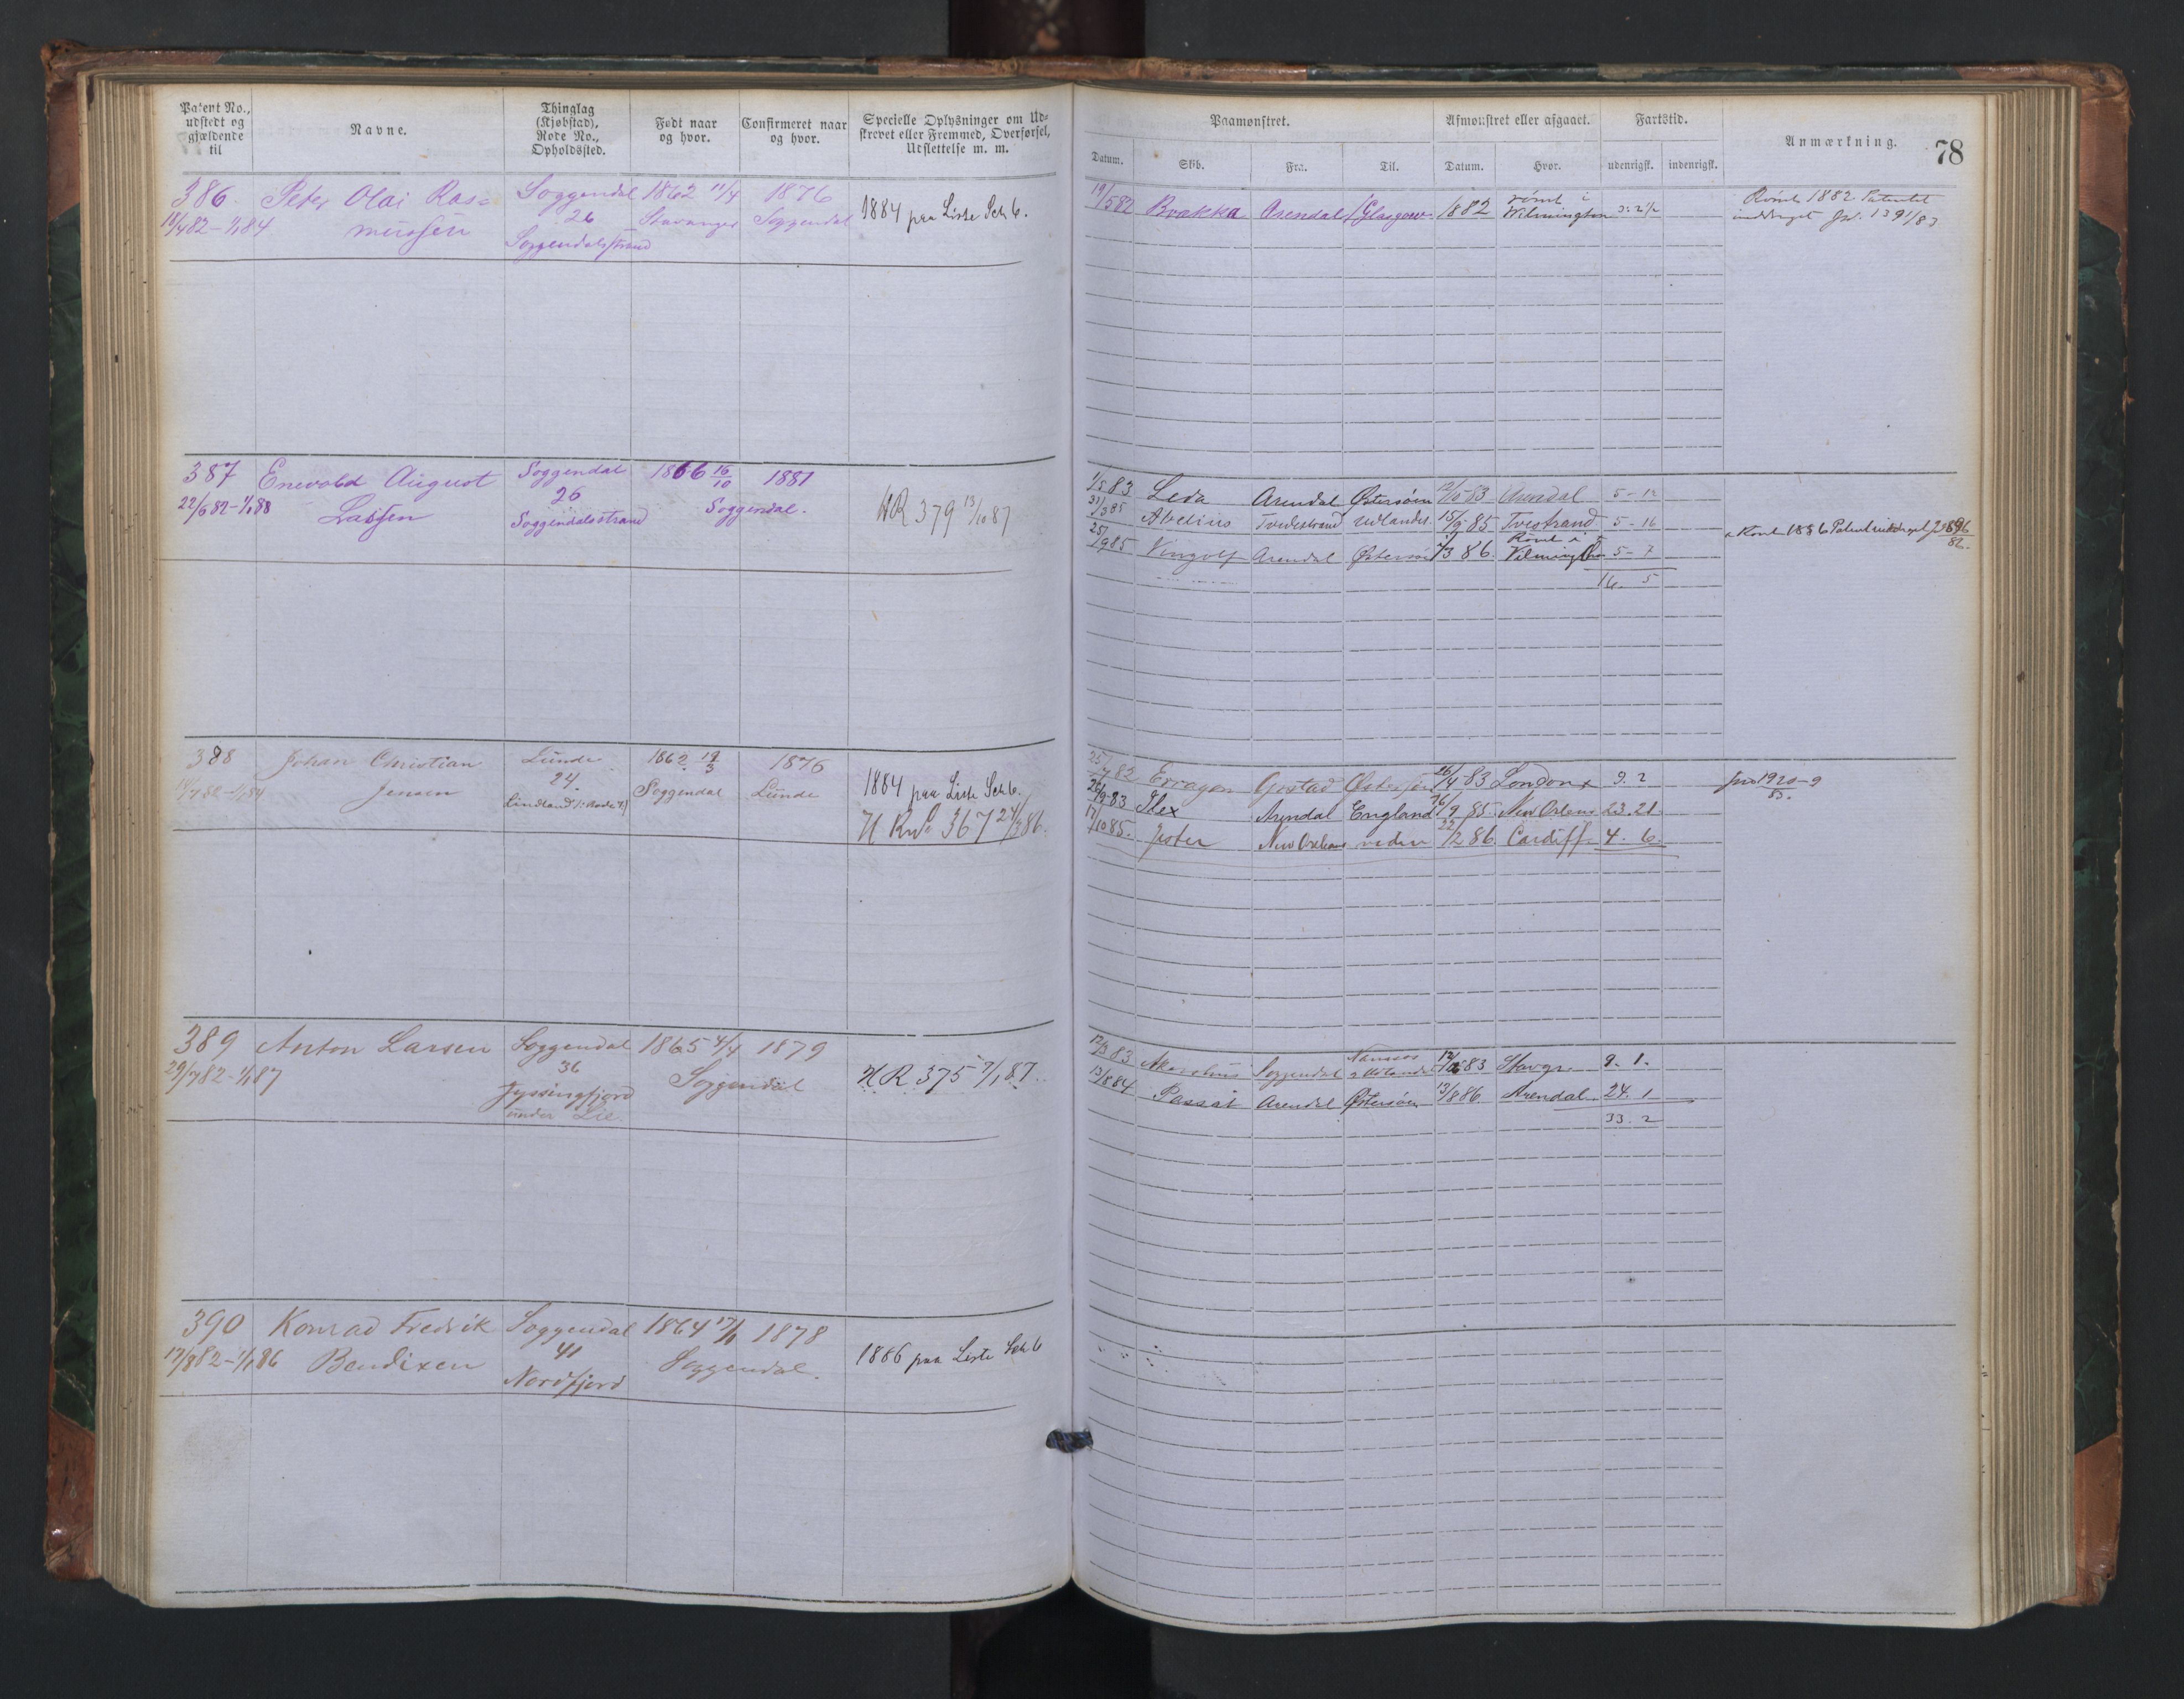 Patent No., udstedt og gjældende til
Navne.
Thinglag (Kjøbstad), Rode No., Opholdssted.
Født naar og hvor.
Confirmeret naar og hvor.
Specielle Oplysninger om Udskrevet eller Fremmed, Overførsel, Udslettelse m. m.
Paamønstret.
Afmønstret eller afgaaet.
Fartstid.
Anmærkning.
78
Datum.
Skib.
Fra.
Til.
Datum.
Hvor.
udenrigsk.
indenrigsk.
386. Peter Olai Ras= Soggendal 1862 11/4 1876
18/4 82 - 1/1 84 mussen 26 Stavanger Soggendal
Soggendalsstrand
1884 paa Liste Sch 6.
19/5 82 Brækka Arendal Glasgow 1882 rømt i Wilmington 3. 2 1/2
Rømt 1882 Patentet
inddraget Jnl. 1391/83
387 Enevold August Soggendal 1866 16/10 1881
22/6 82 - 1/1 88 Lassen 26 Soggendal.
Soggendalsstrand
HR 379 13/10 87
1/5 83 Leda Arendal Østersøen 12/10 83 Arendal 5 - 12
31/3 85 Abelius Tvedestrand udlandet 15/9 85 Tvestrand 5 - 16
25/9 85 Vingolf Arendal Østersø 3 86. Rømt i Vilmington 5 - 7
16. 5
Rømt 1886 Patent inddraget
388 Johan Christian Lunde 1862 19/3 1876
Jensen 24. Soggendal Lunde
Lindland
1884 paa Liste Sch 6.
H R No 367 24/3 86.
25/7 82 Gostad 26/4 83 London 9. 2
26/9 83 Ilex Arendal England 16/9 85 New Orlens 23. 21
17/10 85. Jester New Orleans videre 22/2 86 Cardiff 4. 6.
Jno 1920-9
83.
389 Anton Larsen Soggendal 1865 4/4 1879
29/7 82 - 1/1 87 36 Soggendal
Jyssingfjord
under Lie.
H R. 375 7/1 87.
12/3 83 Akershus Soggendal Namsos & Udlandet 12/12 83 Stavgr. 9. 1.
13/8 84 Passat Arendal Østersøen 13/8 86. Arendal 24. 1
33. 2
390 Konrad Fredrik Soggendal 1864 17/1 1878
17/8 82 - 1/1 86 Bendixen 41 Soggendal.
Nordfjord
1886 paa Liste Sch 6